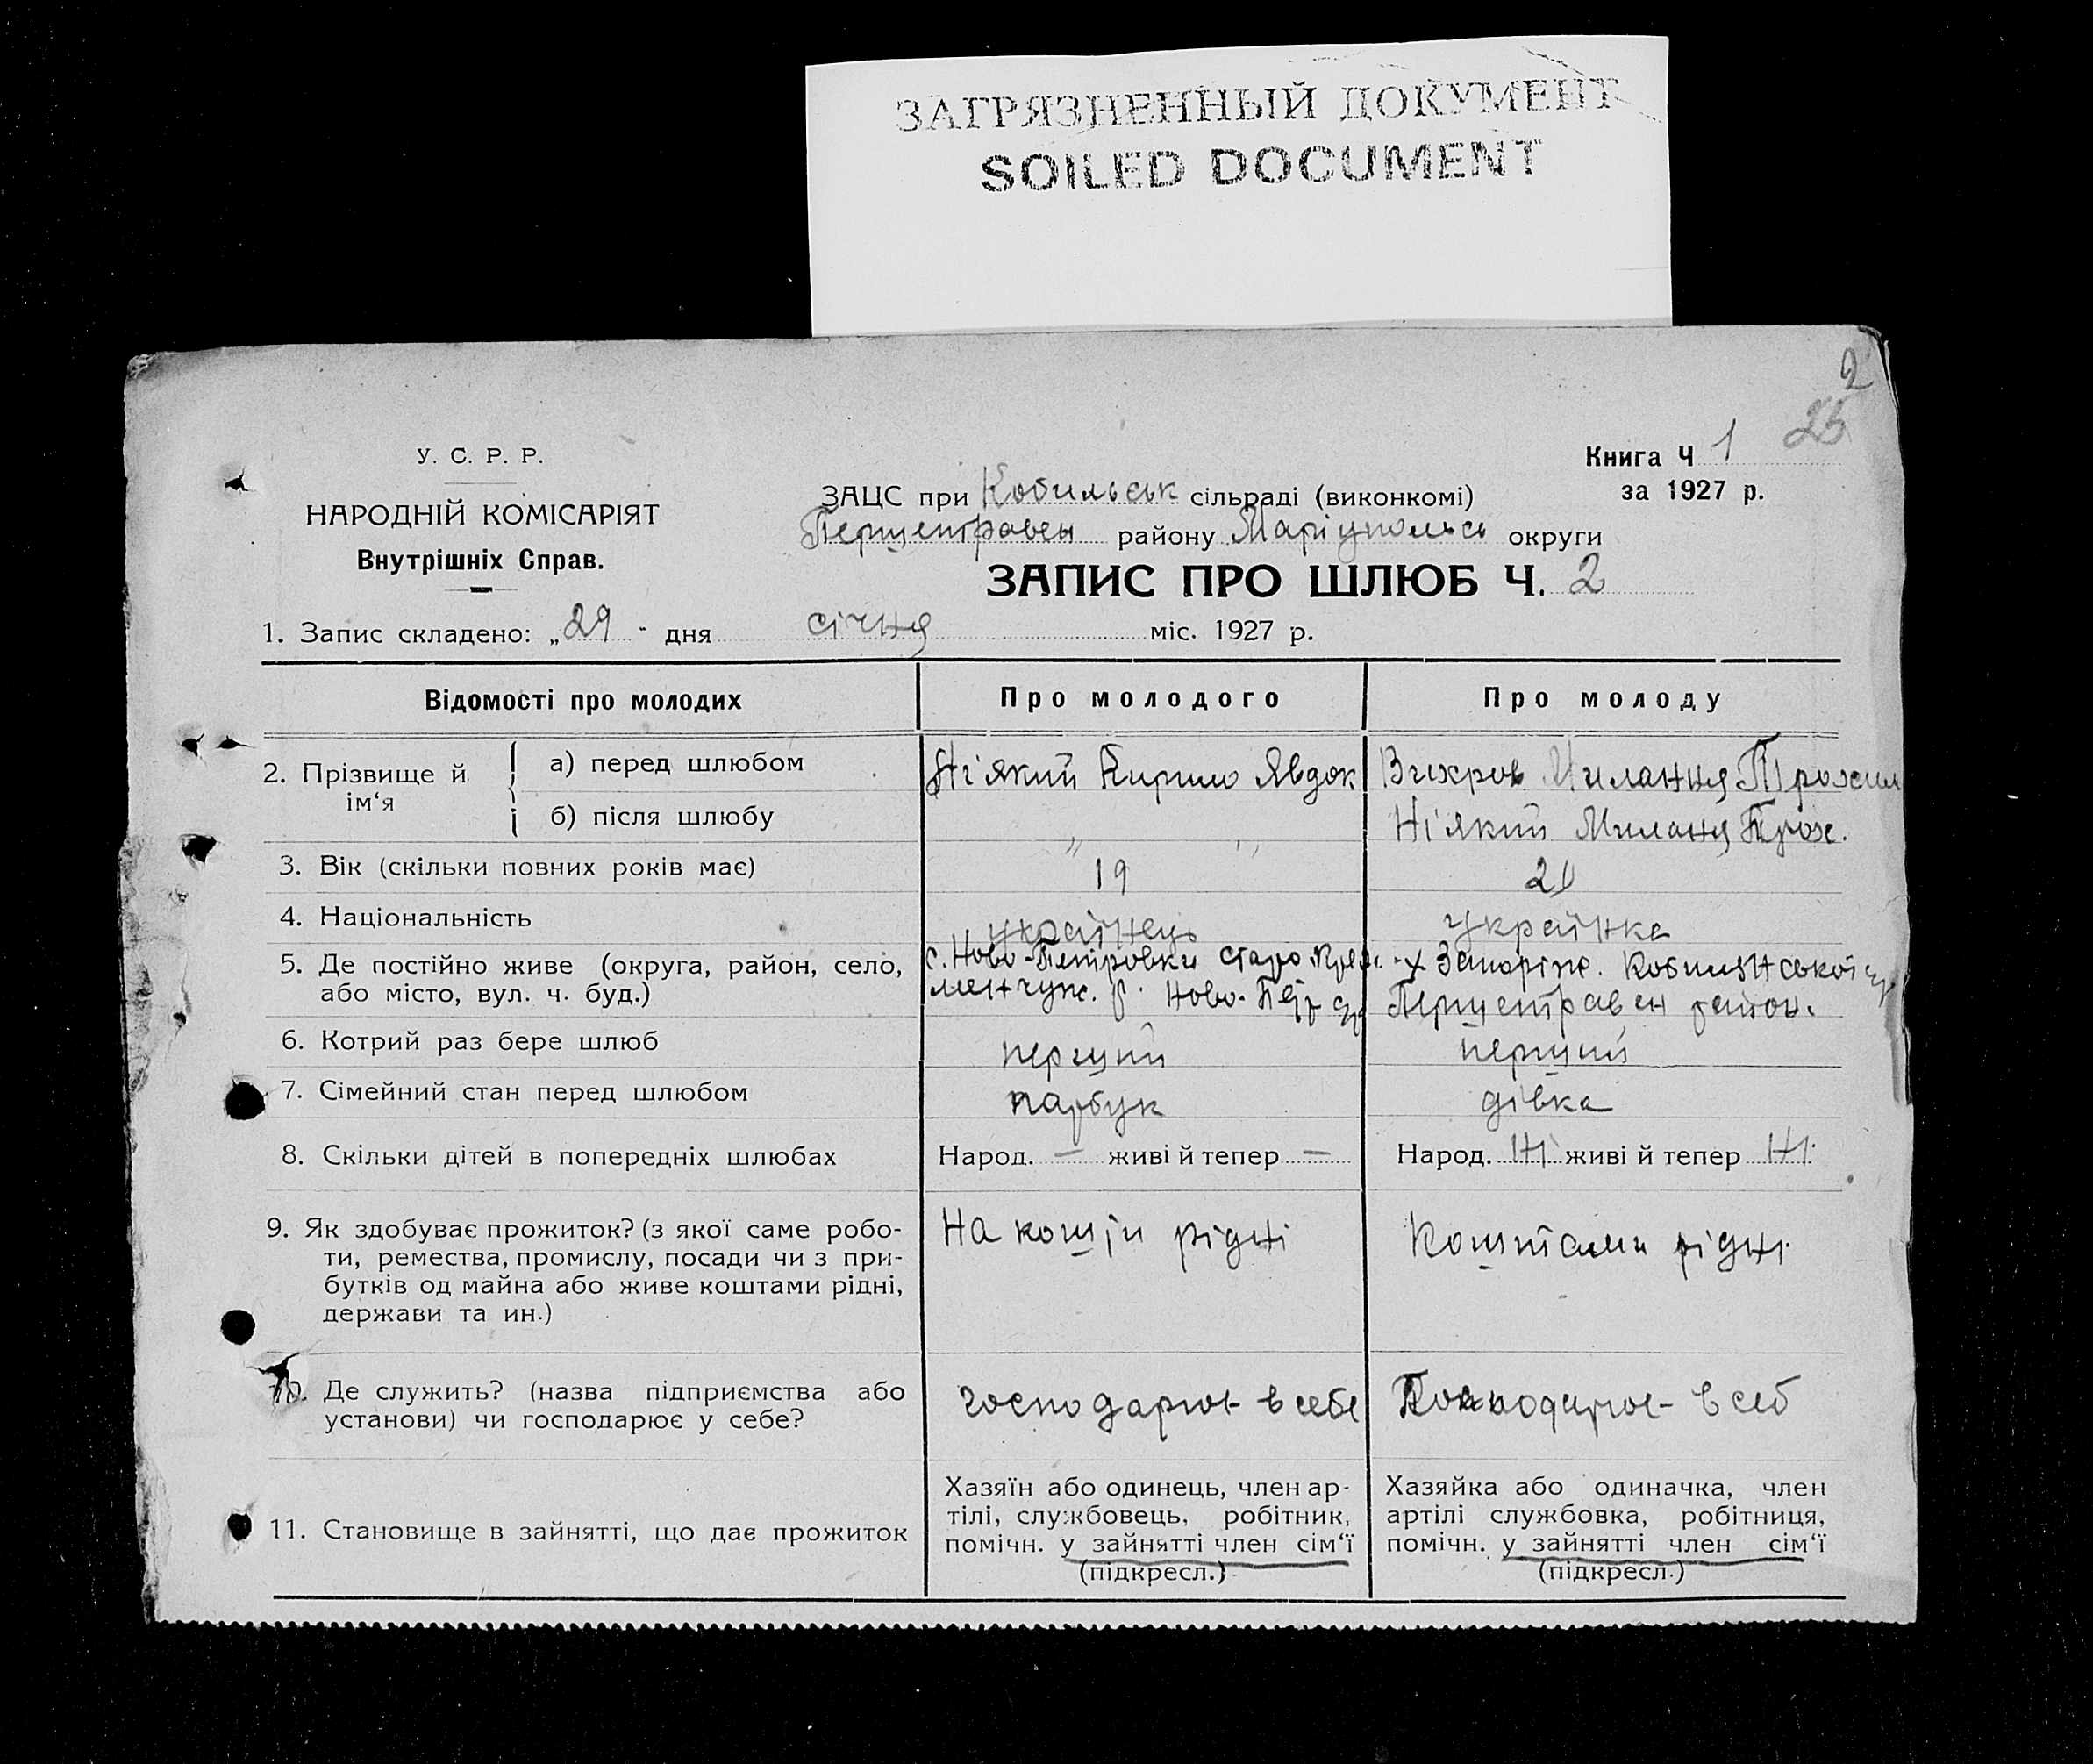 ЗАГРЯЗНЕННЫЙ ДОКУМЕНТ
SOILED DOCUMENT
2
25
У. С. Р. Р.
НАРОДНІЙ КОМІСАРІЯТ
Внутрішніх Справ.
Книга Ч 1
за 1927 р.
ЗАЦС при Кобильськ сільраді (виконкомі)
Першетравен району Маріупольсь округи
ЗАПИС ПРО ШЛЮБ Ч. 2
1. Запис складено: „29 " дня січня міс. 1927 р.
Відомості про молодих
Про молодого
Про молоду
2. Прізвище й ім'я
а) перед шлюбом
Ні'який Кирило Явдок
Вихров Милания Прохим
б) після шлюбу
" "
Ні'який Миланя Прох.
3. Вік (скільки повних років має)
19
20
4. Національність
українець
українка
5. Де постійно живе (округа, район, село,
або місто, вул. ч. буд.)
с. Ново-Петровки Старо Крем
менчуж. р. Ново-Петр
х Запоріж.
Першетравен район.
6. Котрий раз бере шлюб
перший
перший
7. Сімейний стан перед шлюбом
парубк
дівка
8. Скільки дітей в попередніх шлюбах
Народ. — живі й тепер —
Народ. Ні живі й тепер Ні
9. Як здобуває прожиток? (з якої саме робо-
ти, ремества, промислу, посади чи з при-
бутків од майна або живе коштами рідні,
держави та ин.)
На кошти рідні
Коштами рідні
10. Де служить? (назва підприємства або
установи) чи господарює у себе?
господарює в себе
Господарює в себ
11. Становище в зайнятті, що дає прожиток
Хазяїн або одинець, член ар-
тілі, службовець, робітник,
помічн. у зайнятті член сім'ї
(підкресл.)
Хазяйка або одиначка, член
артілі службовка, робітниця,
помічн. у зайнятті член сім'ї
(підкресл.)